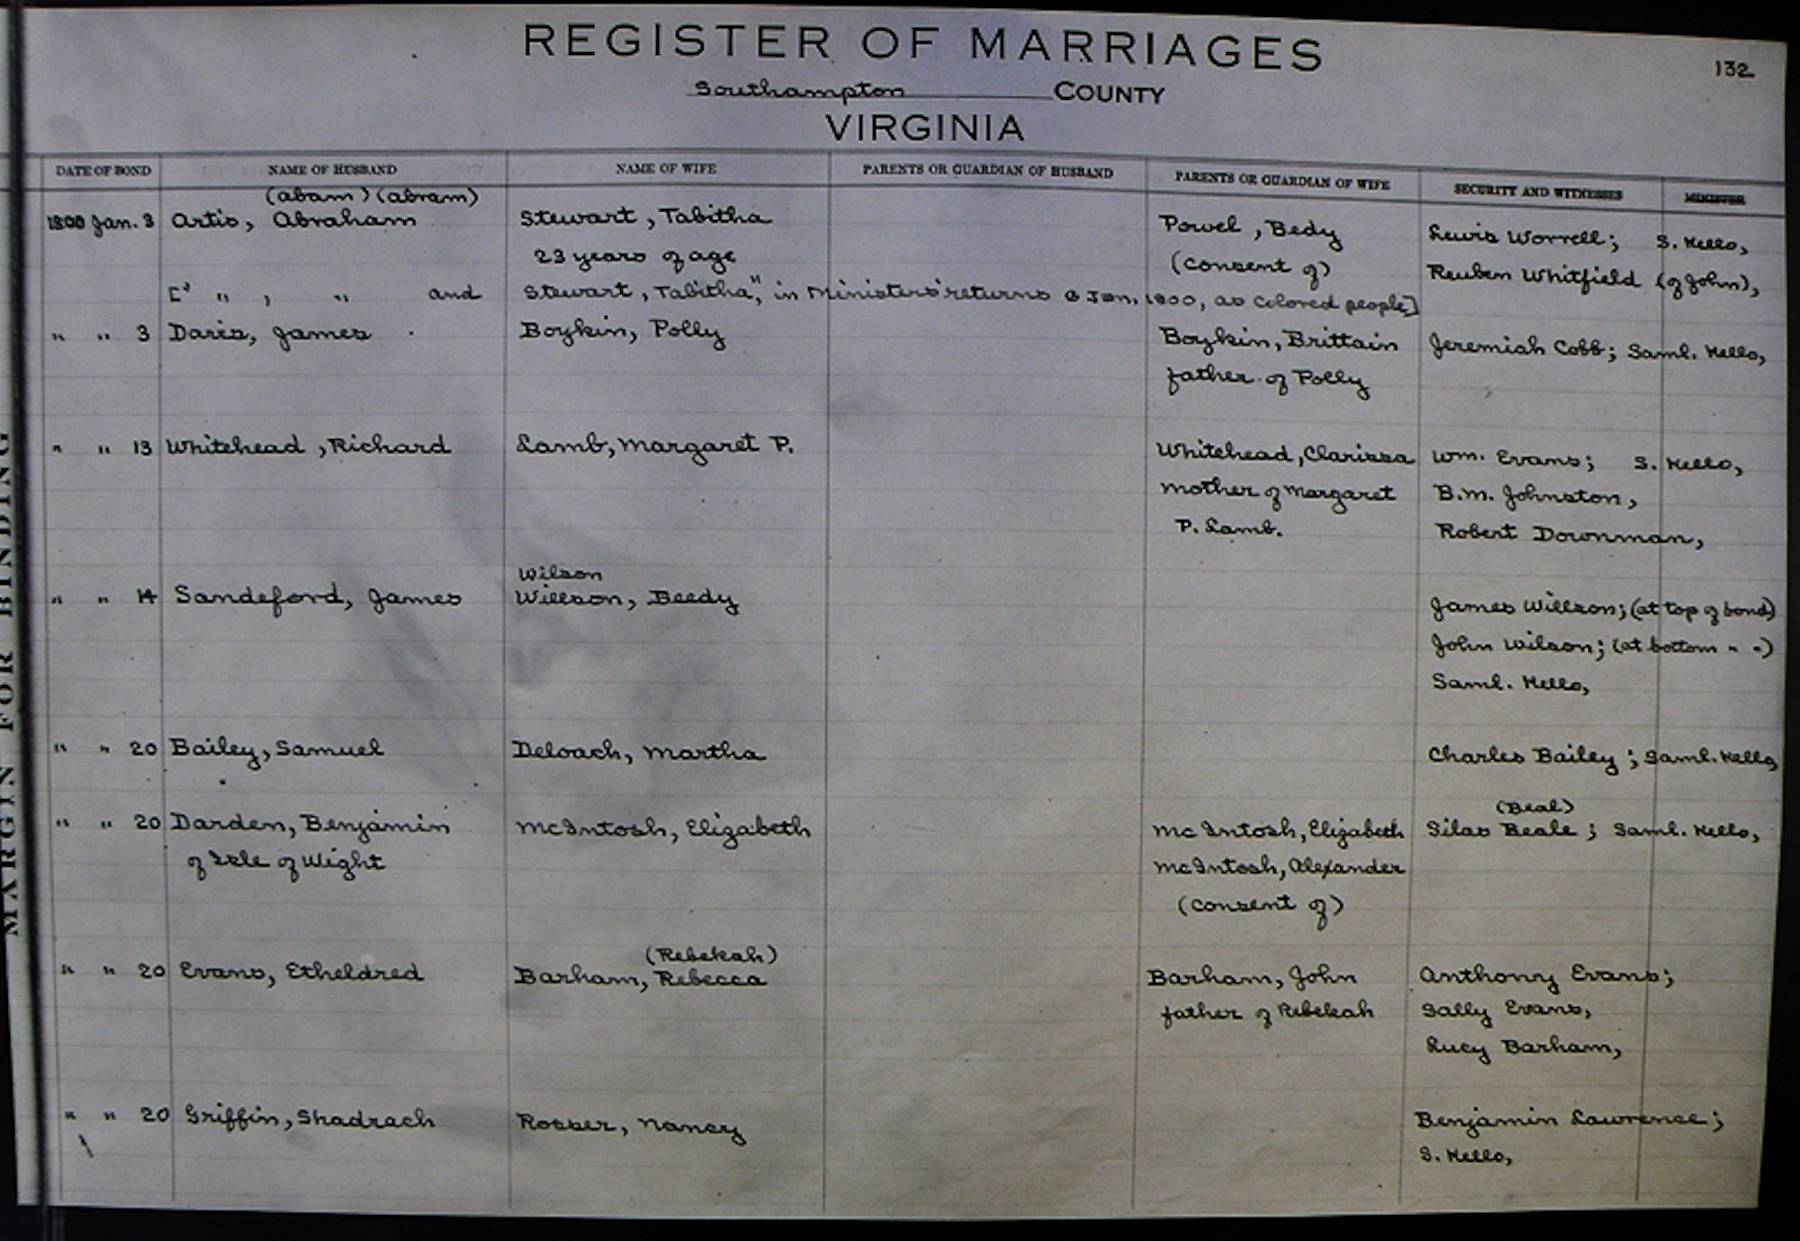 REGISTER OF MARRIAGES
132
Southampton COUNTY
VIRGINIA
DATE OF BOND NAME OF HUSBAND NAME OF WIFE PARENTS OR GUARDIAN OF HUSBAND PARENTS OR GUARDIAN OF WIFE SECURITY AND WITNESSES MINISTER
(abam) (abram)
1800 Jan. 3 Artis, Abraham Stewart, Tabitha Powel, Bedy Lewis Worrell; S. Kello,
23 years of age (consent of) Reuben Whitfield (of John),
[" " , " and Stewart, Tabitha", in Ministers' returns 6 Jan, 1800, as colored people]
" " 3 Davis, James Boykin, Polly Boykin, Brittain Jeremiah Cobb; Saml. Kello,
father of Polly
" " 13 Whitehead, Richard Lamb, Margaret P. Whitehead, Clarissa Wm. Evans; S. Kello,
mother of Margaret B.M. Johnston,
P. Lamb. Robert Downman,
Wilson
" " 14 Sandeford, James Willson, Beedy James Willson; (at top of bond)
John Wilson; (at bottom " ")
Saml. Kello,
" " 20 Bailey, Samuel Deloach, Martha Charles Bailey; Saml. Kello,
(Beal)
" " 20 Darden, Benjamin McIntosh, Elizabeth McIntosh, Elizabeth Silas Beale; Saml. Kello,
of Isle of Wight McIntosh, Alexander
(consent of)
(Rebekah)
" " 20 Evans, Etheldred Barham, Rebecca Barham, John Anthony Evans;
father of Rebekah Sally Evans,
Lucy Barham,
" " 20 Griffin, Shadrach Rosser, Nancy Benjamin Lawrence;
S. Kello,
MARGIN FOR BINDING